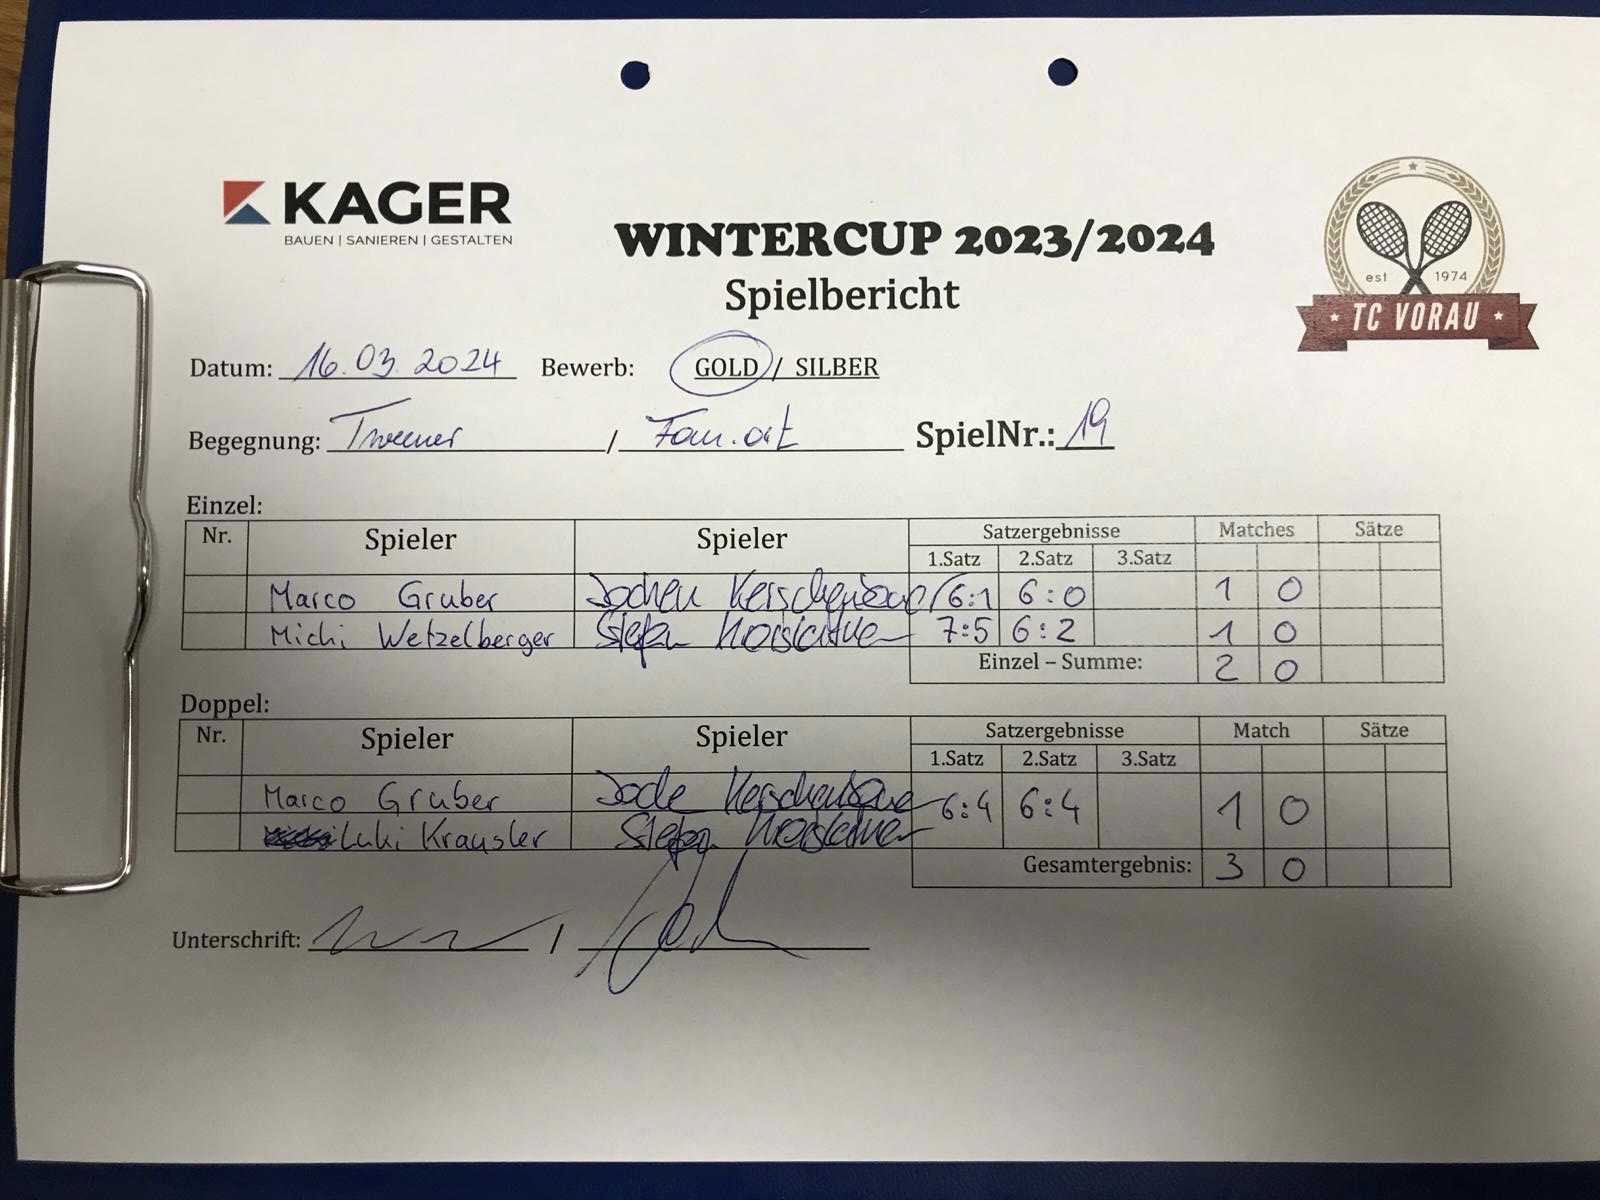 KAGER
BAUEN | SANIEREN | GESTALTEN
WINTERCUP 2023/2024
Spielbericht
est 1974
TC VORAU
Datum: 16.03.2024 Bewerb: GOLD / SILBER
Begegnung: Tweener / SpielNr.: 19
Einzel:
Nr. Spieler Spieler Satzergebnisse Matches Sätze
1.Satz 2.Satz 3.Satz
Marco Gruber Jochen 6:1 6:0 1 0
Michi Wetzelberger Stefan 7:5 6:2 1 0
Einzel – Summe: 2 0
Doppel:
Nr. Spieler Spieler Satzergebnisse Match Sätze
1.Satz 2.Satz 3.Satz
Marco Gruber 6:4 6:4 1 0
Luki Krausler Stefan
Gesamtergebnis: 3 0
Unterschrift: /